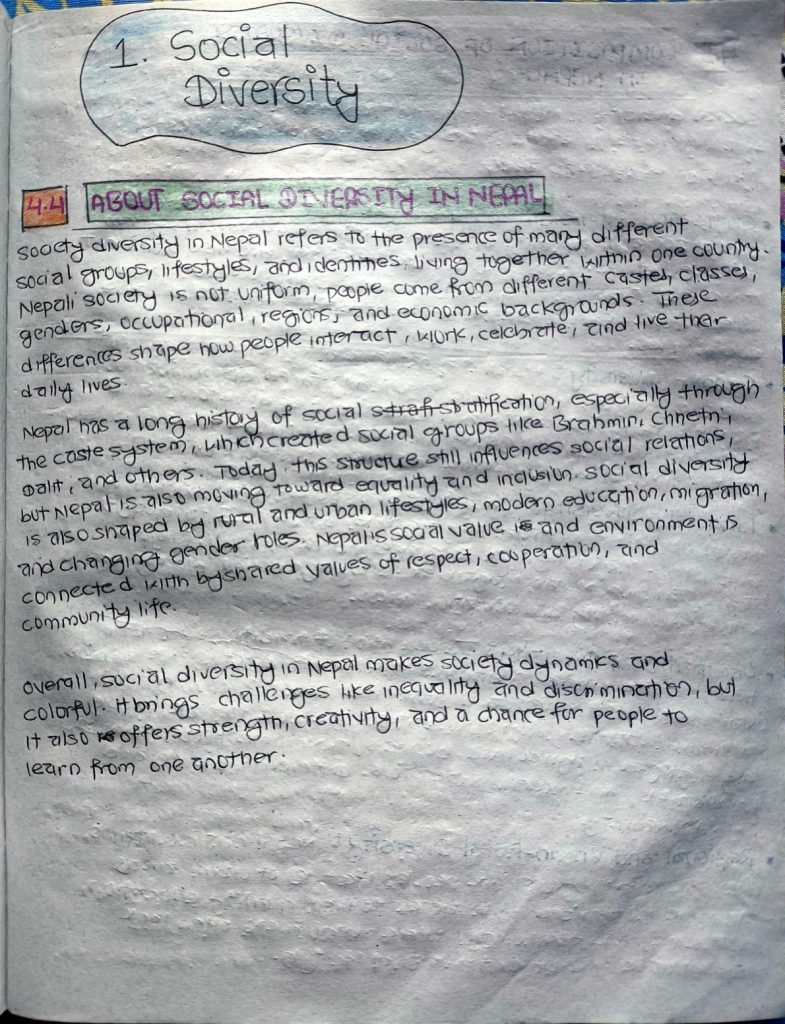 1. Social
Diversity
4.4 ABOUT SOCIAL DIVERSITY IN NEPAL
society diversity in Nepal refers to the presence of many different
social groups, lifestyles, and identities, living together within one country.
Nepali society is not uniform, people come from different castes, classes,
genders, occupational, regions, and economic backgrounds. These
differences shape how people interact, work, celebrate, and live their
daily lives.
Nepal has a long history of social stratification, especially through
the caste system, which created social groups like Brahmin, Chhetri,
Dalit, and others. Today, this structure still influences social relations,
but Nepal is also moving toward equality and inclusion. social diversity
is also shaped by rural and urban lifestyles, modern education, migration,
and changing gender roles. Nepal is social value and environment is
connected with by shared values of respect, cooperation, and
community life.
overall, social diversity in Nepal makes society dynamics and
colorful. It brings challenges like inequality and discrimination, but
it also offers strength, creativity, and a chance for people to
learn from one another.